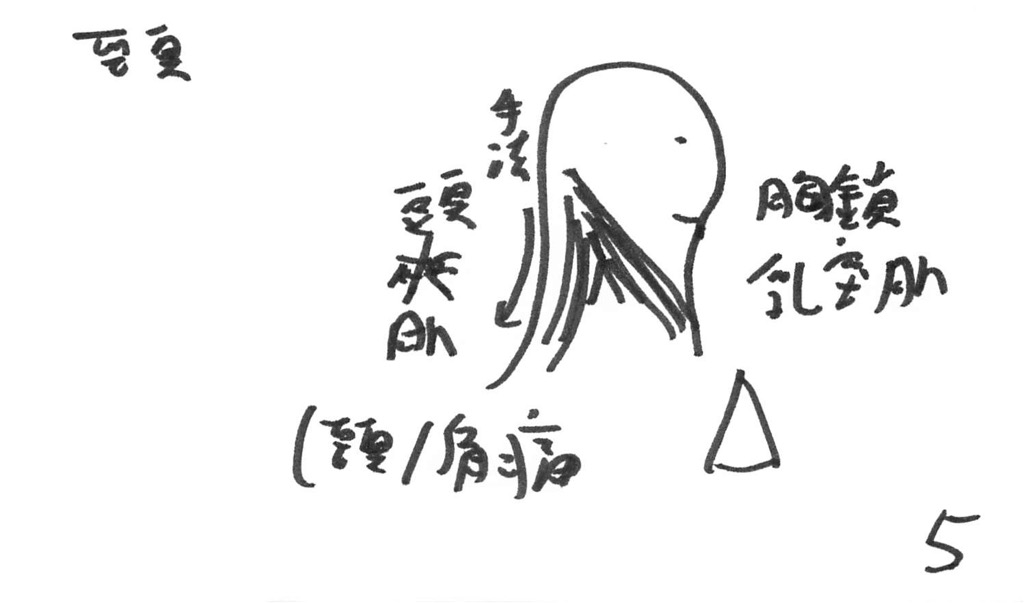 頸
手法
頭夾肌
胸鎖
乳突肌
(頭/肩)痛
5